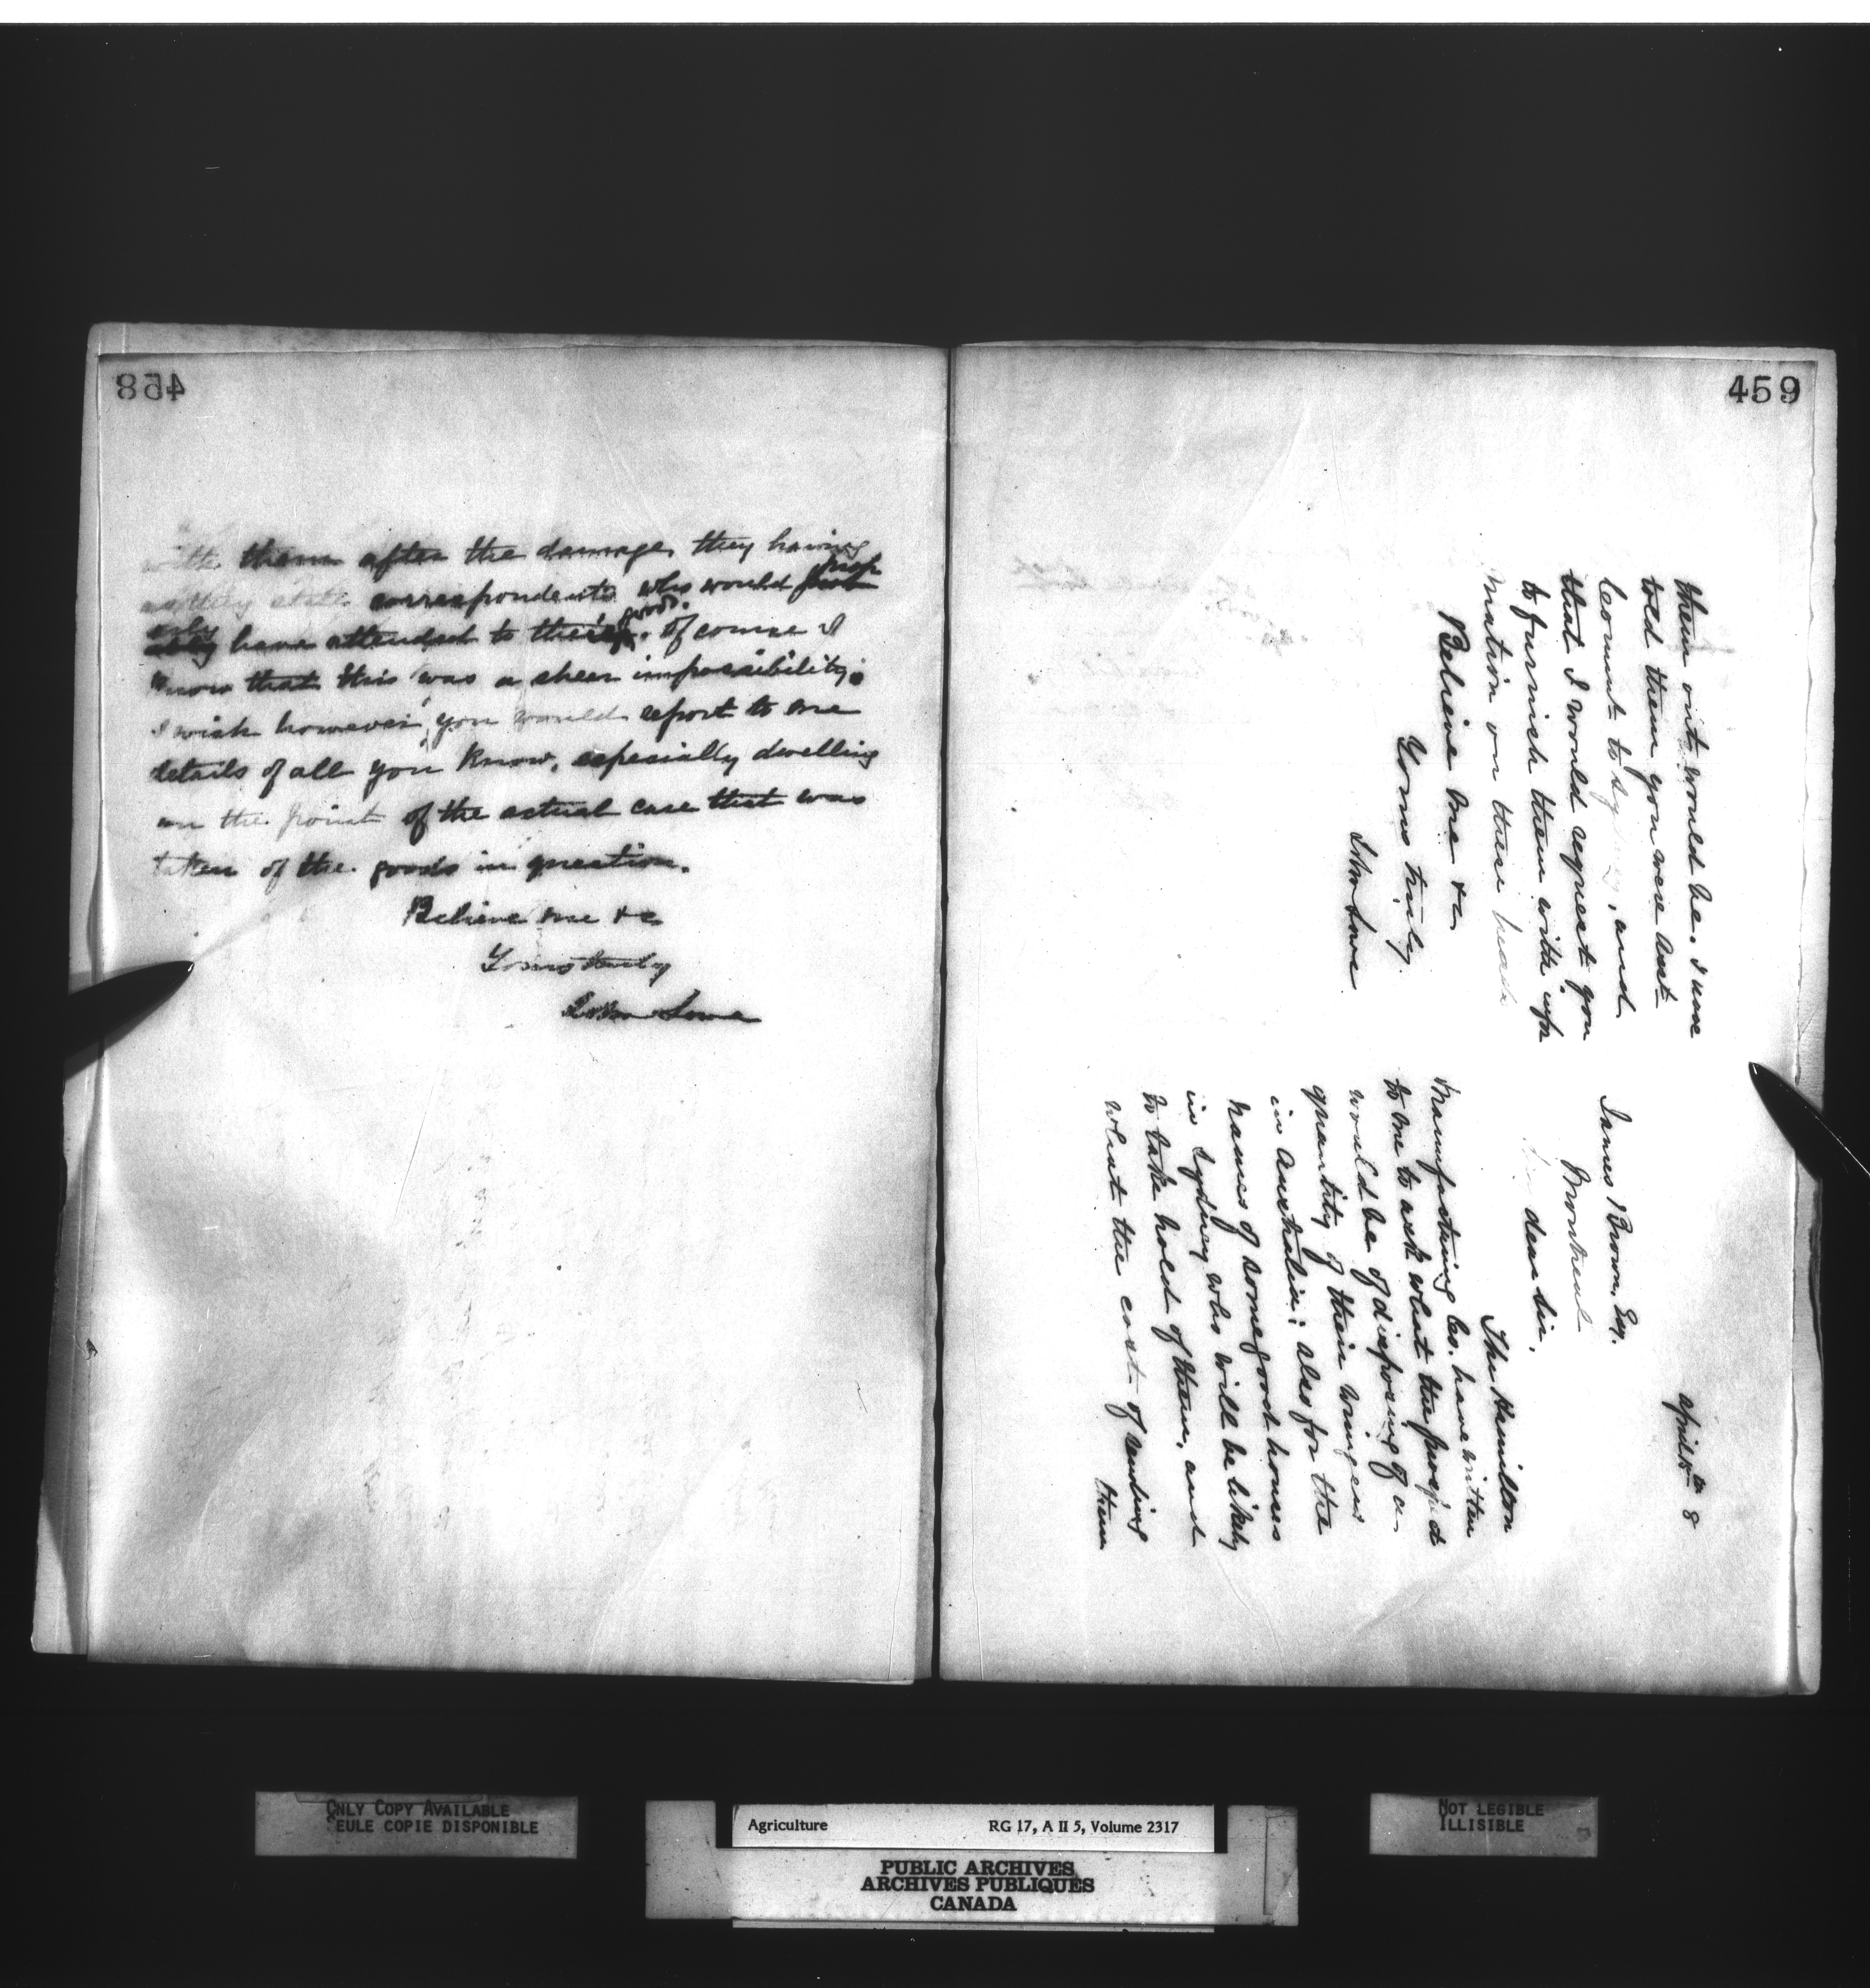 458
with them after the damage, they having
as they state correspondents who would prop
erly have attended to their goods. Of course I
know that this was a sheer impossibility.
I wish however, you would report to me
details of all you know, especially dwelling
on the point of the actual care that was
taken of the goods in question.
Believe me &c
Yours truly
John Lowe
459
April 8
James Brown, Esq.
Montreal
dear Sir,
The Hamilton
Manufacturing Co. have written
to me to ask what the prospect
would be of disposing of a
quantity of their wringers
in Australia; also for the
names of some good houses
in Sydney who will be likely
to take hold of them, and
what the cost of sending
them
them out would be. I have
told them you were Asst
Comr to Sydney, and
that I would request you
to furnish them with infor
mation on these heads
Believe me &c
Yours truly
John Lowe
ONLY COPY AVAILABLE
SEULE COPIE DISPONIBLE
Agriculture RG 17, A II 5, Volume 2317
PUBLIC ARCHIVES
ARCHIVES PUBLIQUES
CANADA
NOT LEGIBLE
ILLISIBLE